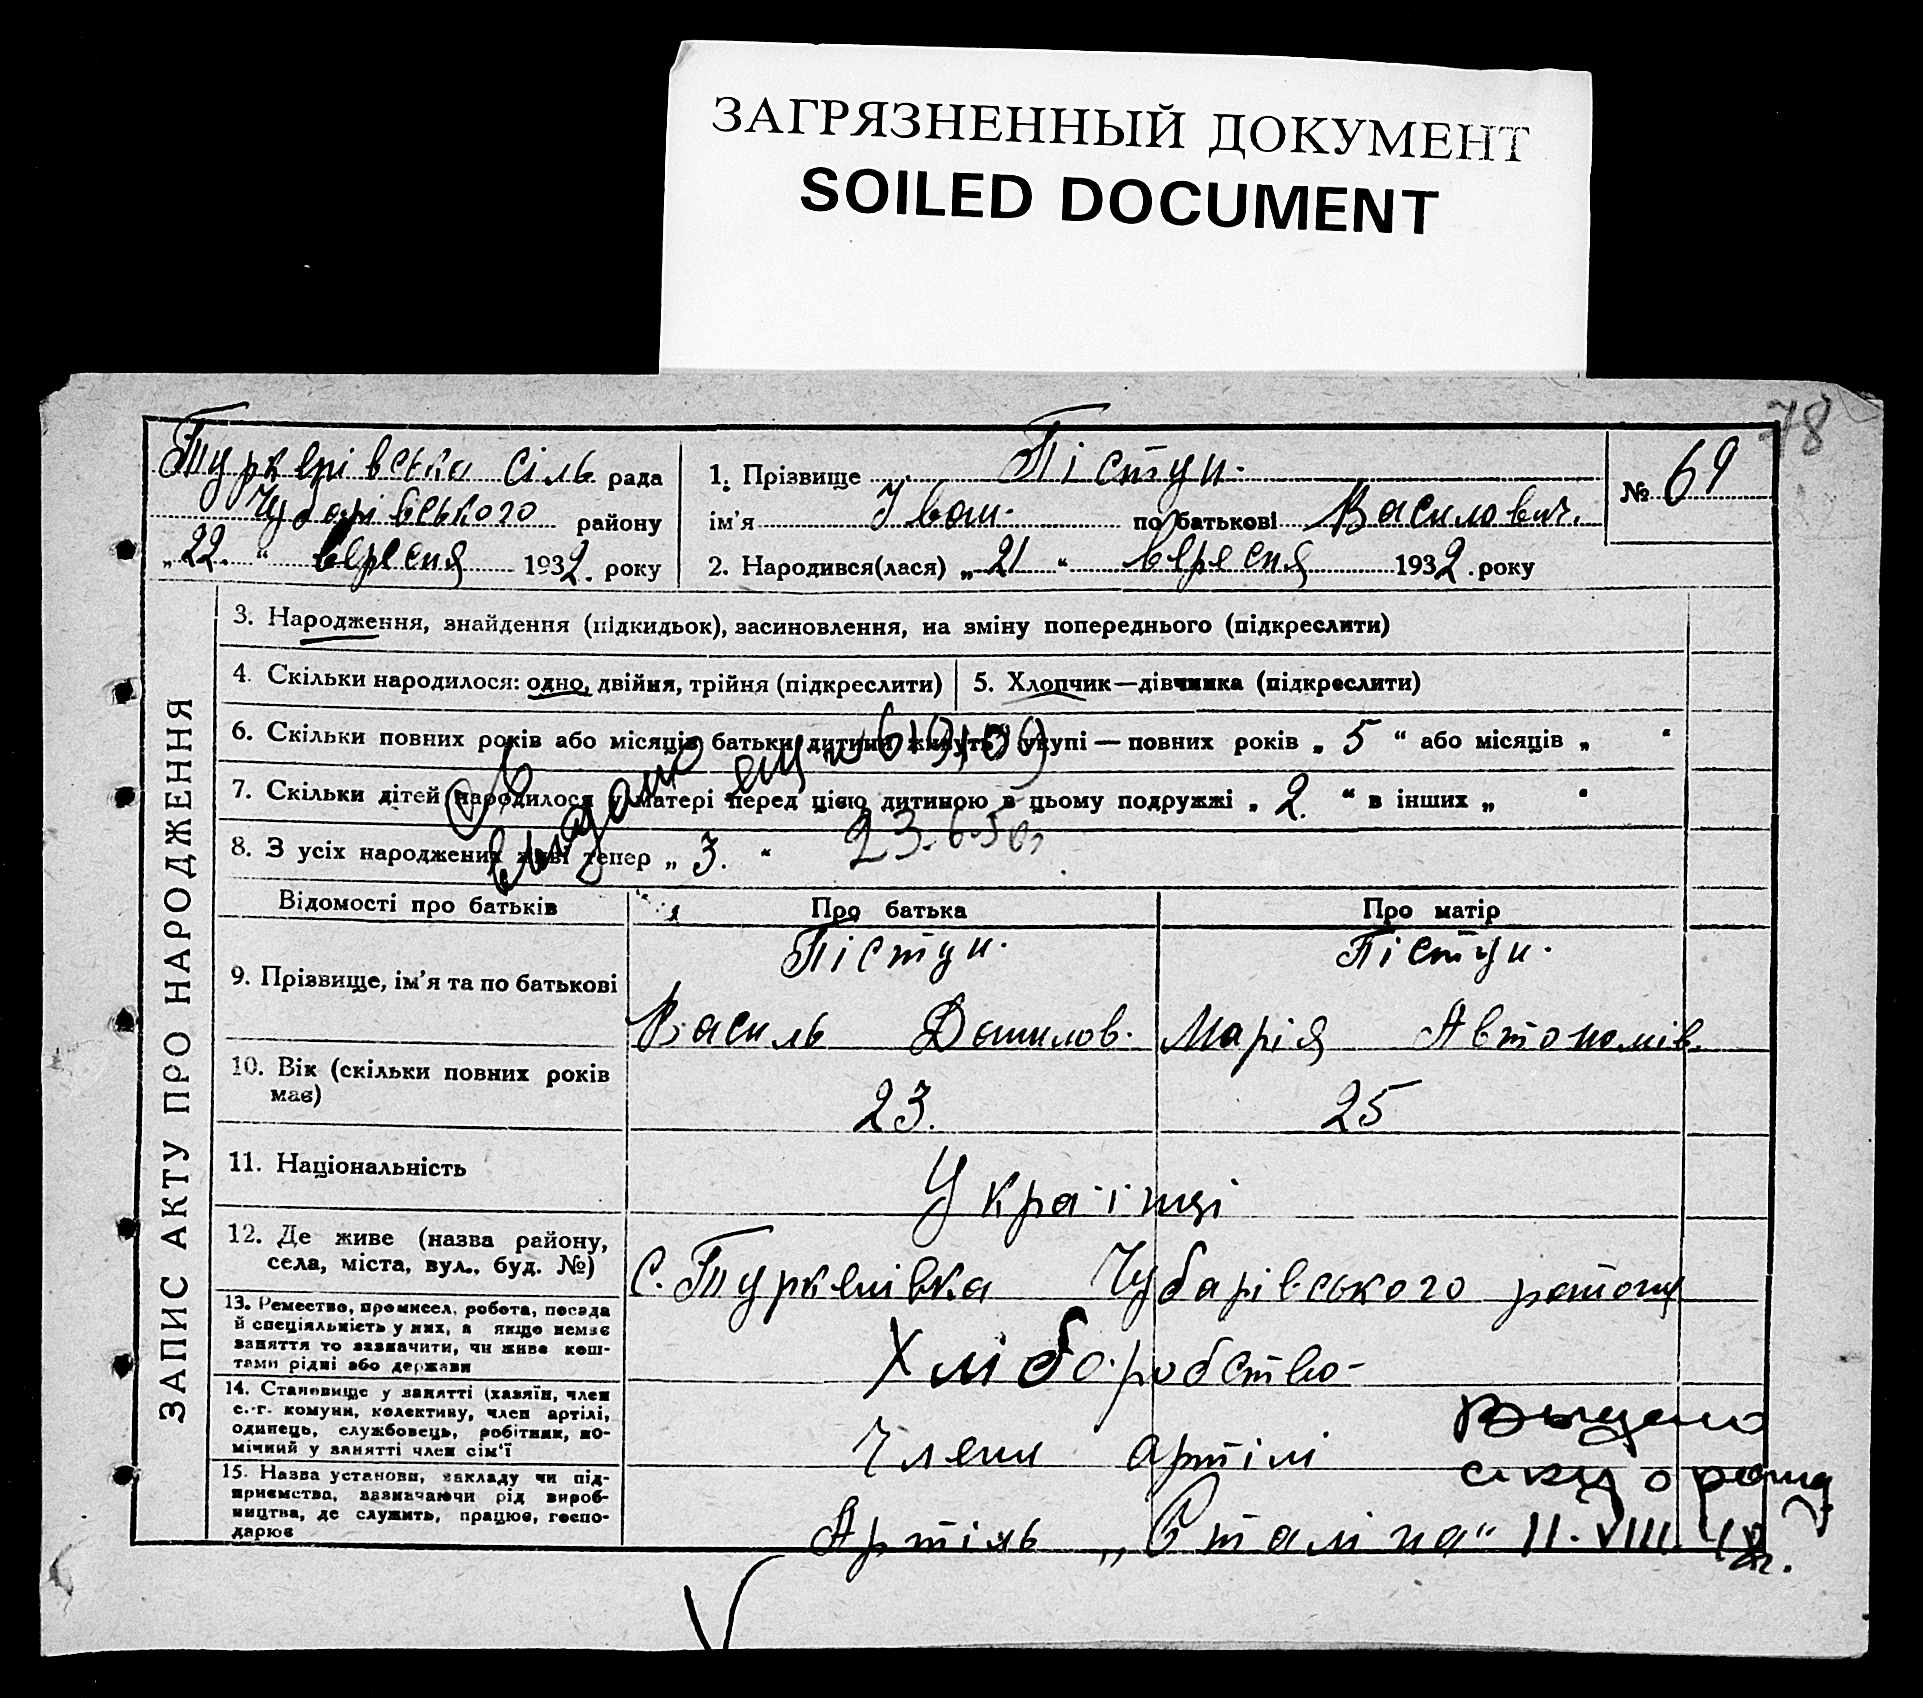 ЗАГРЯЗНЕННЫЙ ДОКУМЕНТ
SOILED DOCUMENT
78
Туркенівська сіль рада
Чубарівського району
„22.“ вересня 1932. року
1. Прізвище Пістун.
ім'я Іван. по батькові Василович.
№ 69
2. Народився(лася) „21“ вересня 1932. року
ЗАПИС АКТУ ПРО НАРОДЖЕННЯ
3. Народження, знайдення (підкидьок), засиновлення, на зміну попереднього (підкреслити)
4. Скільки народилося: одно, двійня, трійня (підкреслити)
5. Хлопчик—дівчинка (підкреслити)
6. Скільки повних років або місяців батьки дитини живуть укупі — повних років „5“ або місяців „ “
7. Скільки дітей народилося у матері перед цією дитиною в цьому подружжі „2.“ в інших „ “
8. З усіх народжених живі тепер „3.“
23.6.50г
Відомості про батьків
Про батька
Про матір
9. Прізвище, ім'я та по батькові
Пістун.
Василь Данилов.
Пістун.
Марія Автономів.
10. Вік (скільки повних років має)
23.
25
11. Національність
Українці
12. Де живе (назва району,
села, міста, вул., буд. №)
С. Туркенівка Чубарівського району
13. Ремество, промисел, робота, посада
й спеціяльність у них, а якщо немає
заняття то зазначити, чи живе кош-
тами рідні або держави
Хліборобство-
14. Становище у занятті (хазяїн, член
с.-г. комуни, колективу, член артілі,
одинець, службовець, робітник, по-
мічний у занятті член сім'ї
Члени артілі
15. Назва установи, закладу чи під-
приємства, зазначаючи рід вироб-
ництва, де служить, працює, госпо-
дарює
Артіль „Сталіна“
II. VIII